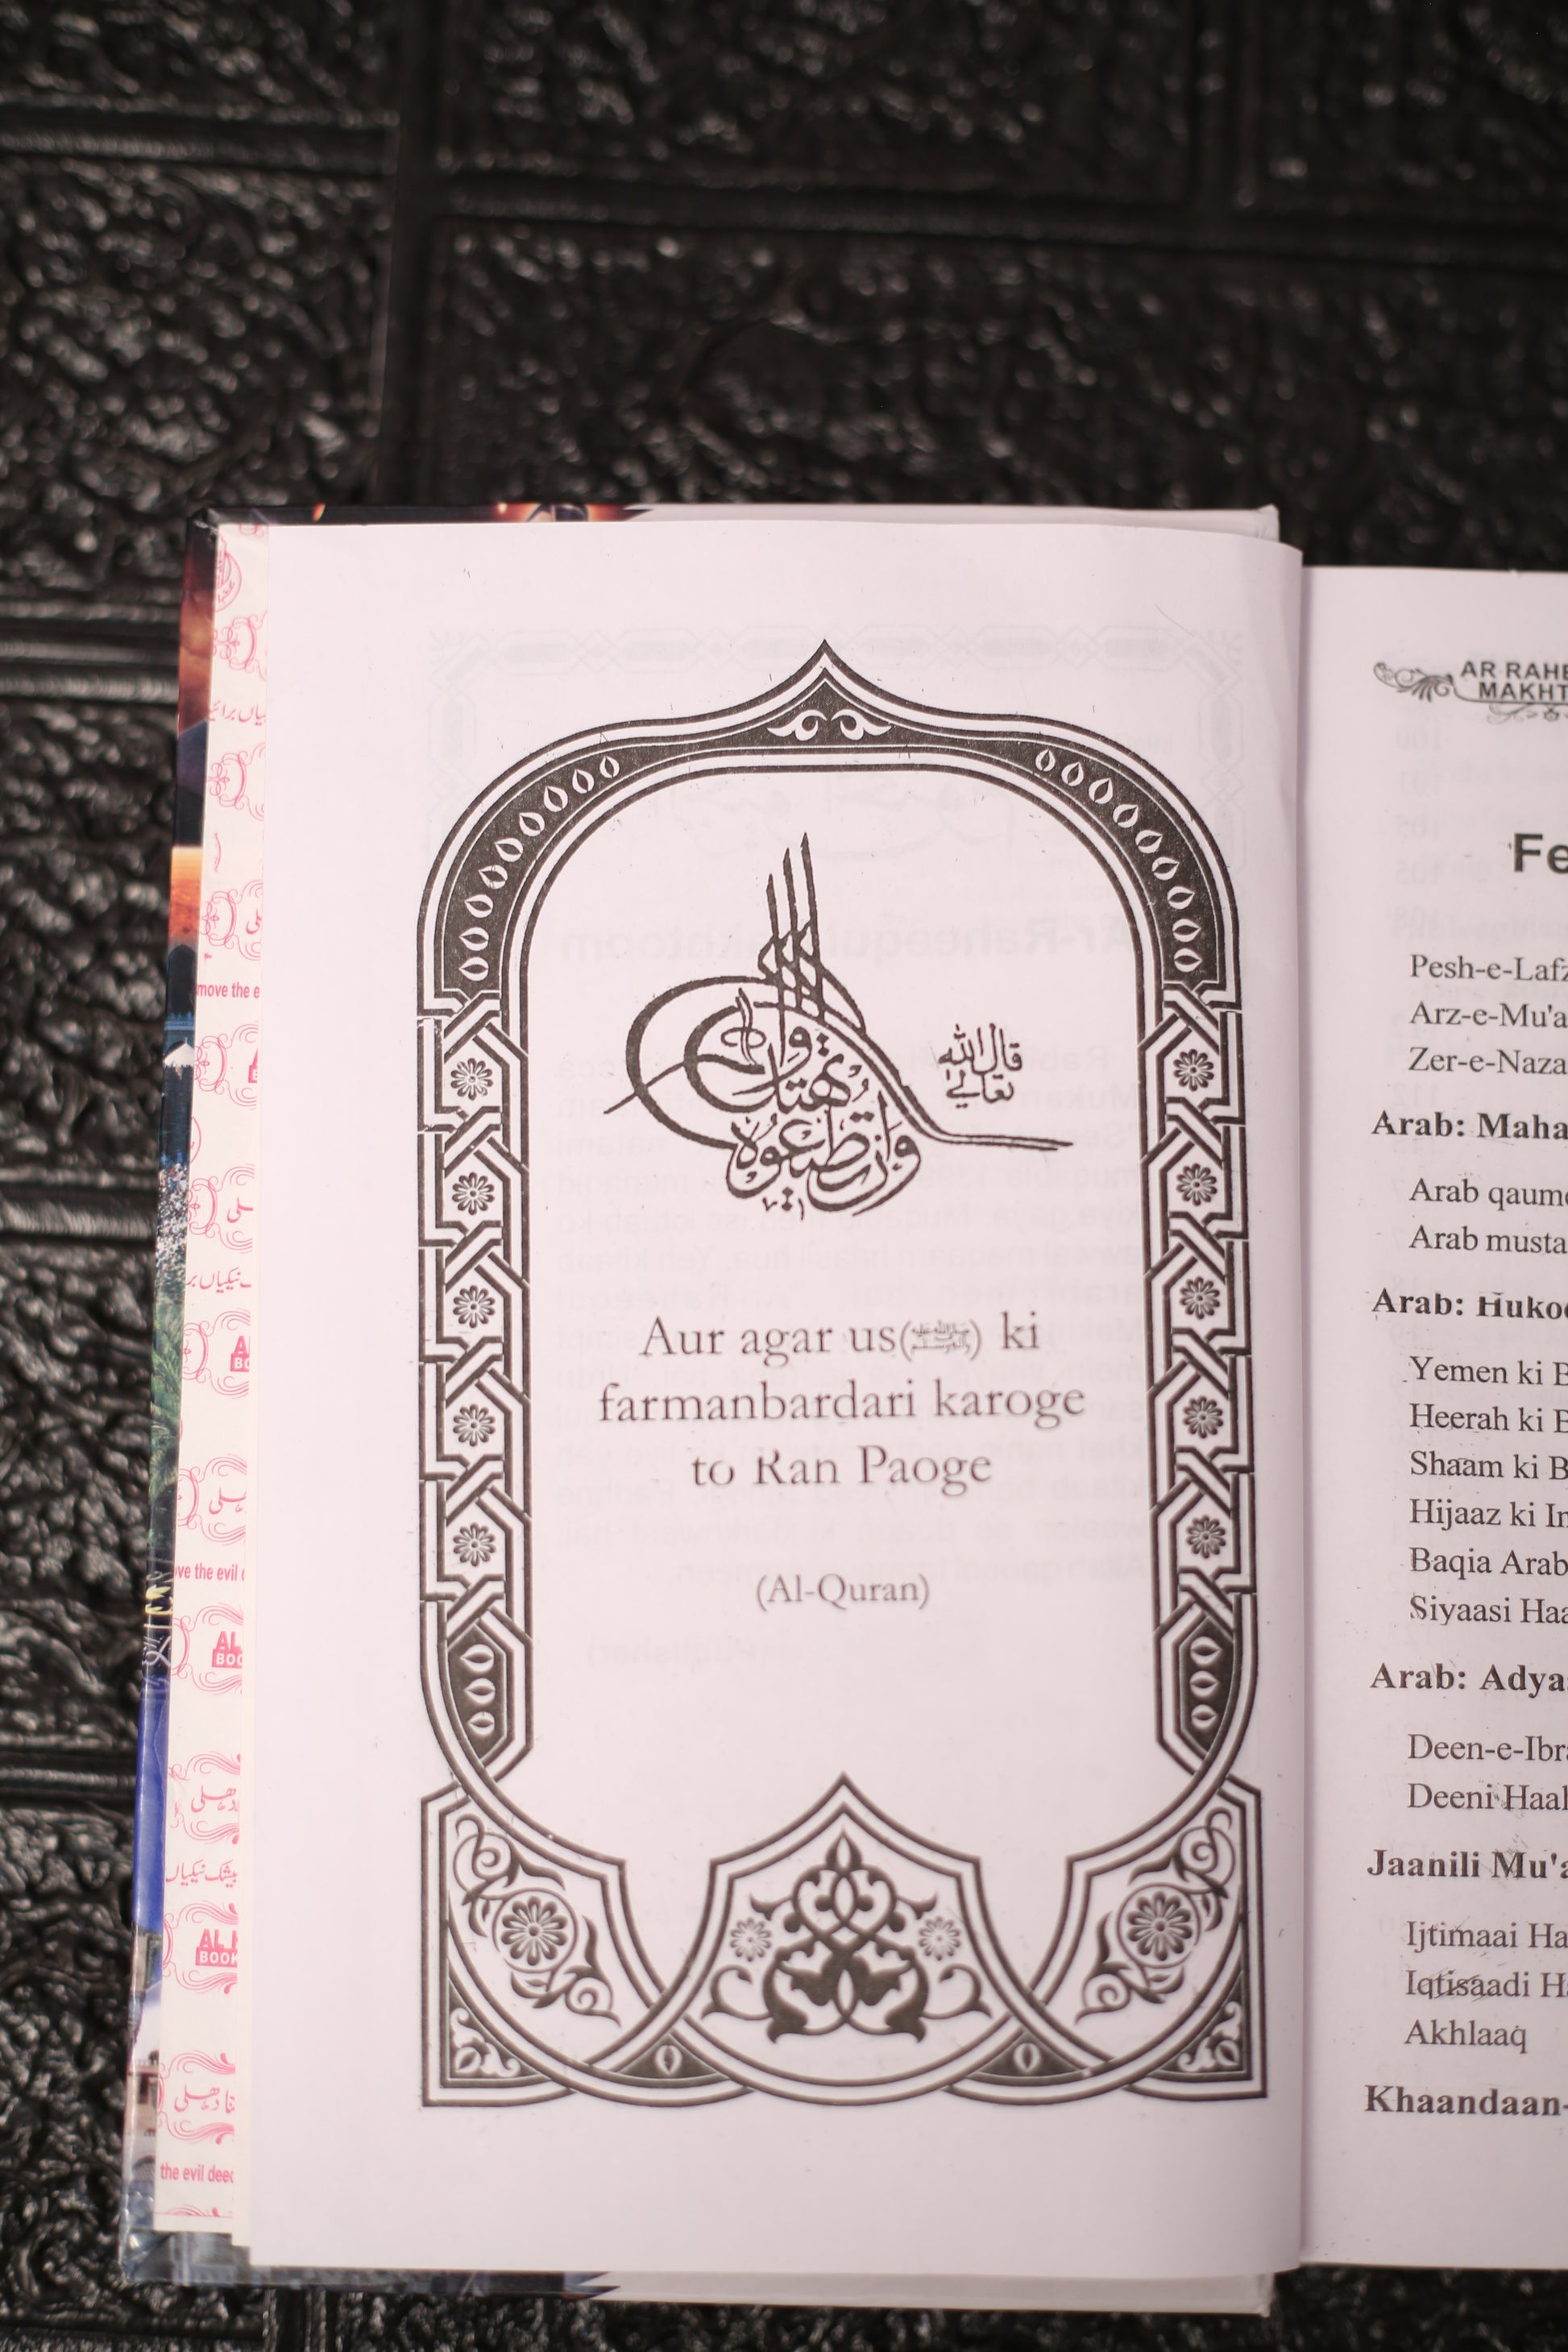 قال الله تعالى
وإن تطيعوه تهتدوا
Aur agar us(ﷺ) ki
farmanbardari karoge
to Ran Paoge
(Al-Quran)
AR RAHE
MAKHT
Fe
Pesh-e-Lafz
Arz-e-Mu'a
Zer-e-Naza
Arab: Maha
Arab qaume
Arab musta
Arab: Hukoo
Yemen ki B
Heerah ki B
Shaam ki B
Hijaaz ki In
Baqia Arab
Siyaasi Haa
Arab: Adya
Deen-e-Ibra
Deeni Haal
Jaahili Mu'a
Ijtimaai Ha
Iqtisaadi Ha
Akhlaaq
Khaandaan-
move the e
ve the evil
بیشک نیکیاں
the evil deed